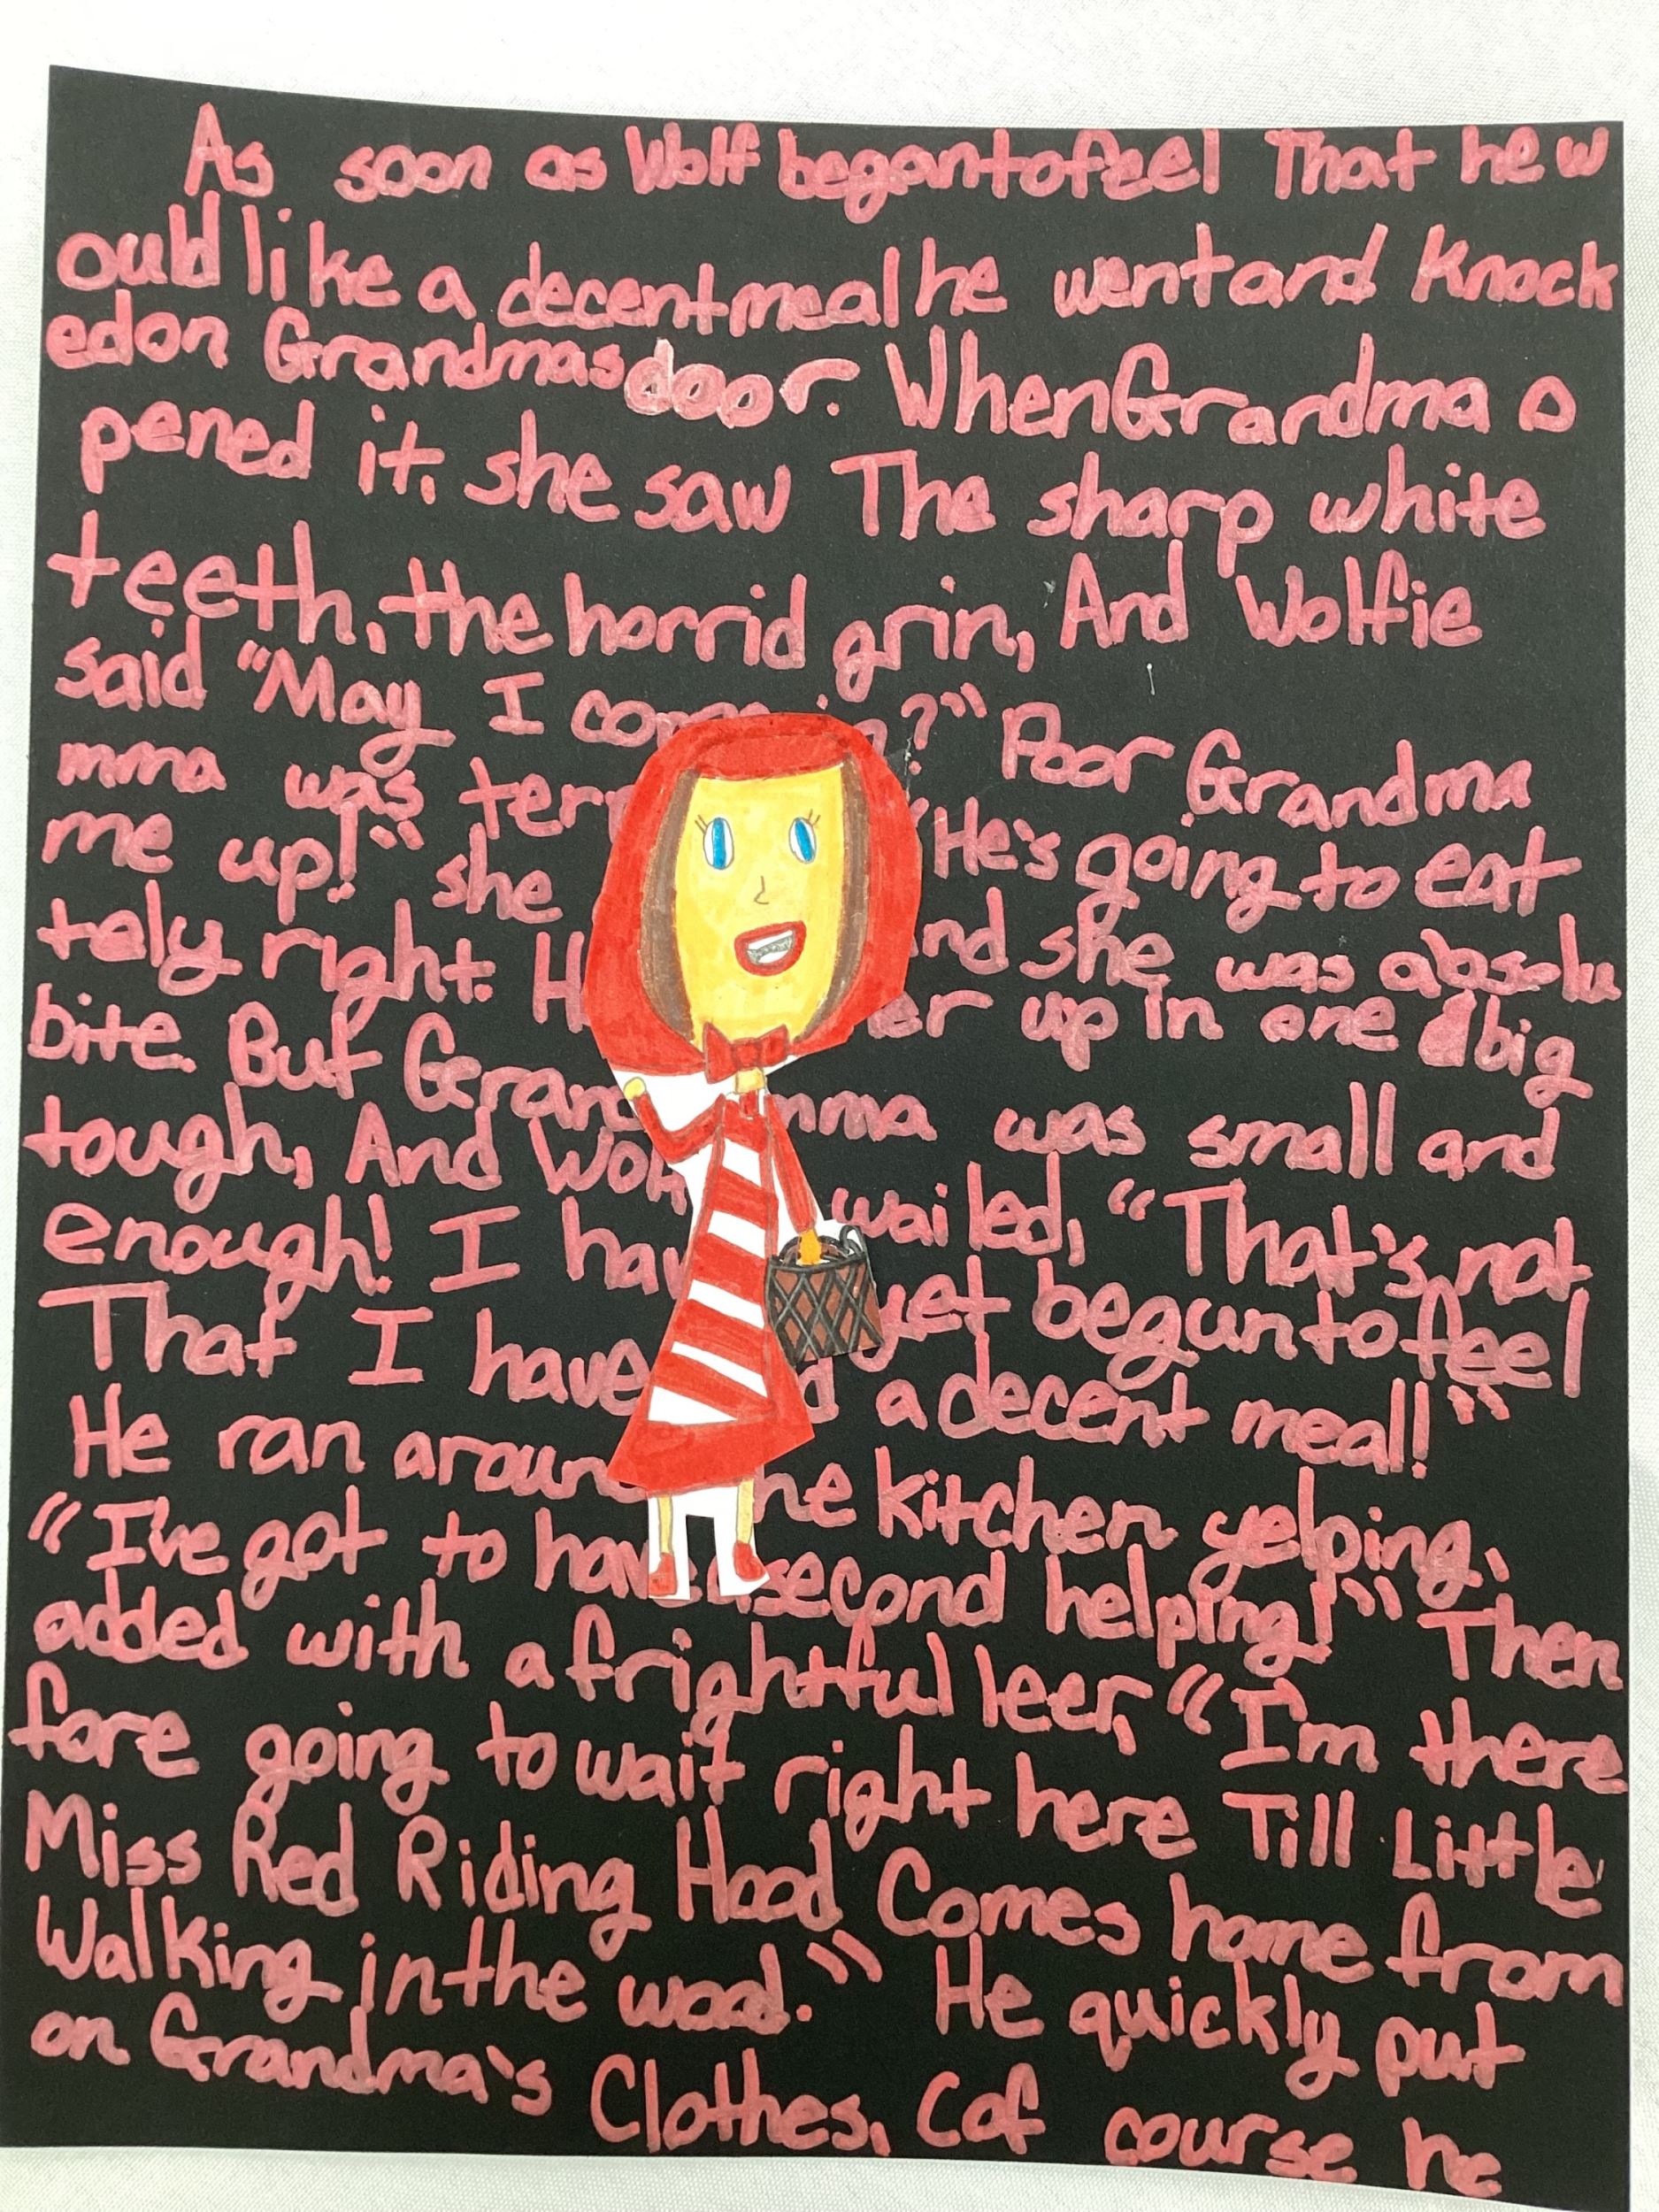 As soon as Wolf began to feel That he w
ould like a decent meal he went and Knock
ed on Grandmas door. When Grandma o
pened it, she saw The sharp white
teeth, the horrid grin, And Wolfie
said "May I in?" Poor Grandma
mma was "He's going to eat
me up!" she and she was absolu
tely right. up in one big
bite. But Grandmma was small and
tough, And wailed, "That's not
enough! I yet begun to feel
That I have a decent meal!"
He ran around the kitchen yelping,
"I've got to have a second helping!" Then
added with a frightful leer, "I'm there
fore going to wait right here Till Little
Miss Red Riding Hood Comes home from
Walking in the wood." He quickly put
on Grandma's Clothes, Cof course he